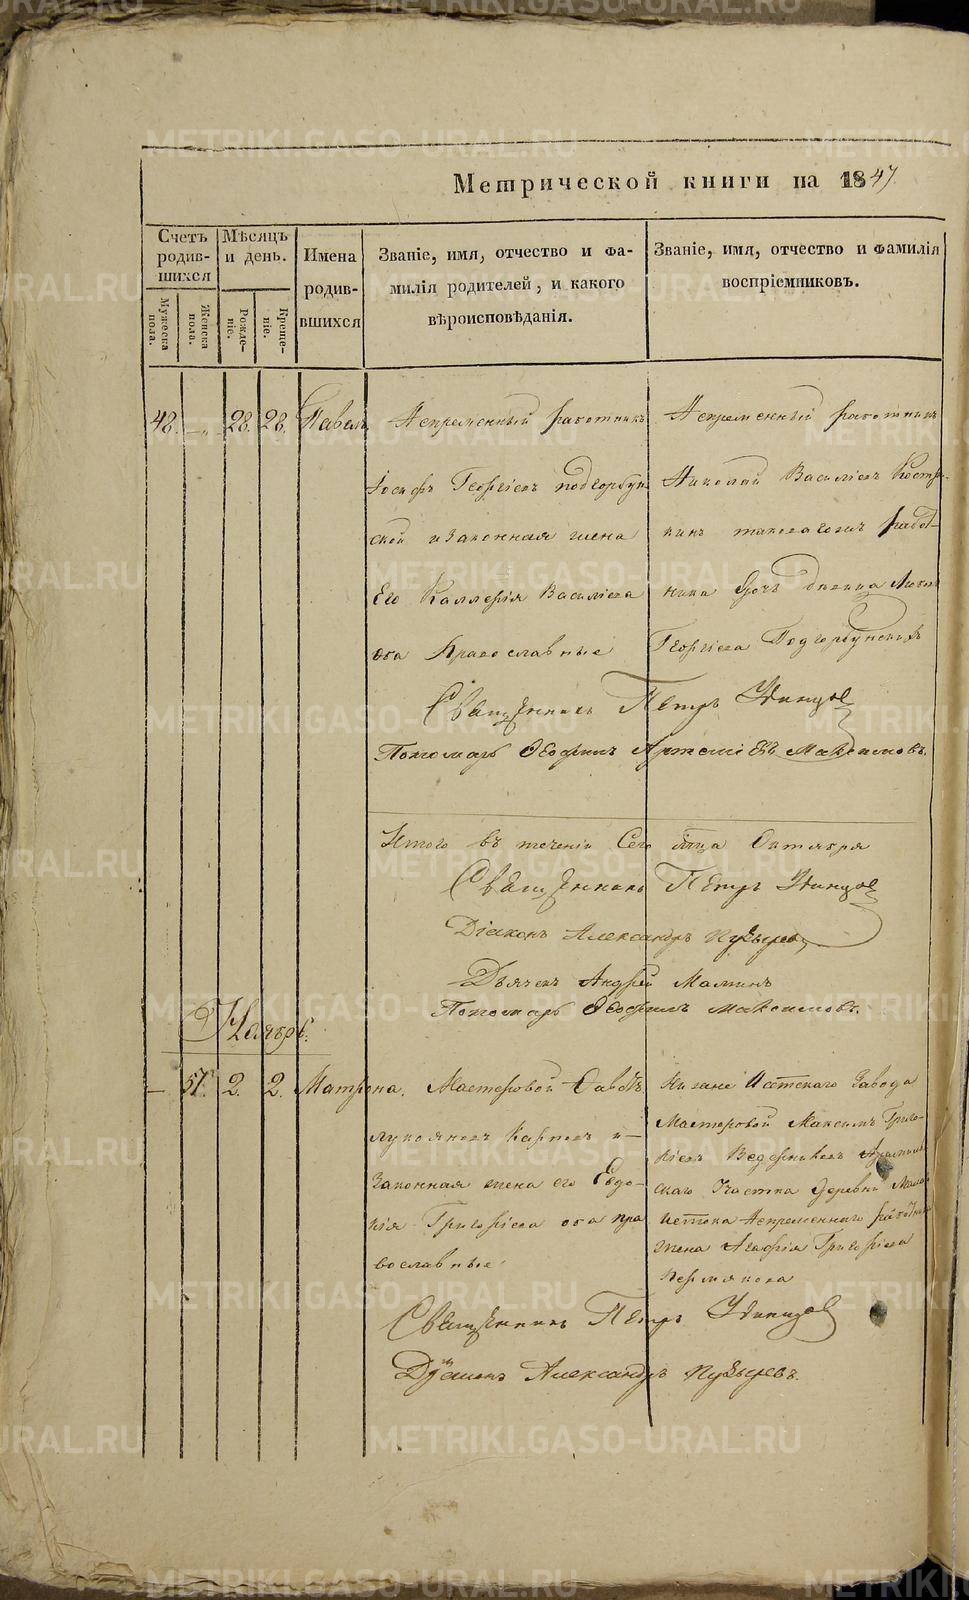 Метрической книги на 1847.
Счетъ родив-
шихся
Мѣсяцъ
и день.
Имена
родив-
шихся
Званіе, имя, отчество и фа-
милія родителей, и какого
вѣроисповѣданія.
Званіе, имя, отчество и фамилія
воспріемниковъ.
Мужеска
пола.
Женска
пола.
Рожде-
ніе.
Креще-
ніе.
48. 28. 28. Павелъ
Непременный работникъ
Іосифъ Георгіевъ подгорбун
ской и законная жена
Его Каллерія Василіева
оба Православные
Непременный работникъ
Николай Василіевъ Костр
кинъ таковагожъ работ-
ника дочь девица
Георгіева Подгорбунскихъ
Священникъ Петръ Удинцов
Пономарь Ѳеофилъ Артеміевъ Максимовъ.
Итого въ теченіи Сего м͠ца Октября
Священникъ Петръ Удинцов
Діаконъ Александръ Пузырев
Дьячекъ Андрей Маминъ
Пономарь Ѳеофилъ Максимовъ.
Ноябрь.
— 57. 2. 2. Матрона.
Мастеровой Савва
Лукояновъ Карповъ и
Законная жена его Евдо-
кія Григоріева оба пра
вославные
Нижне Исетскаго Завода
Мастеровой Максимъ Григо-
ріевъ Ведерниковъ Арамиль
скаго Участка Деревни Мало
истока Непременнаго работника
жена Агафія Григоріева
Пермякова
Священникъ Петръ Удинцов
Діаконъ Александръ Пузыревъ.
METRIKI.GASO-URAL.RU